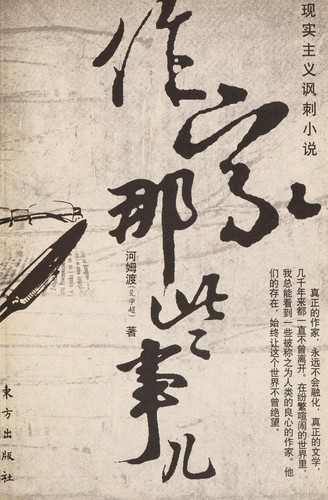 现实主义讽刺小说
作家那些事儿
河姆渡（文学超）著
真正的作家，永远不会融化，真正的文学，
几千年来都一直不曾离开。在纷繁喧闹的世界里，
我总能看到一些被称之为人类的良心的作家。他
们的存在，始终让这个世界不曾绝望。
東方出版社